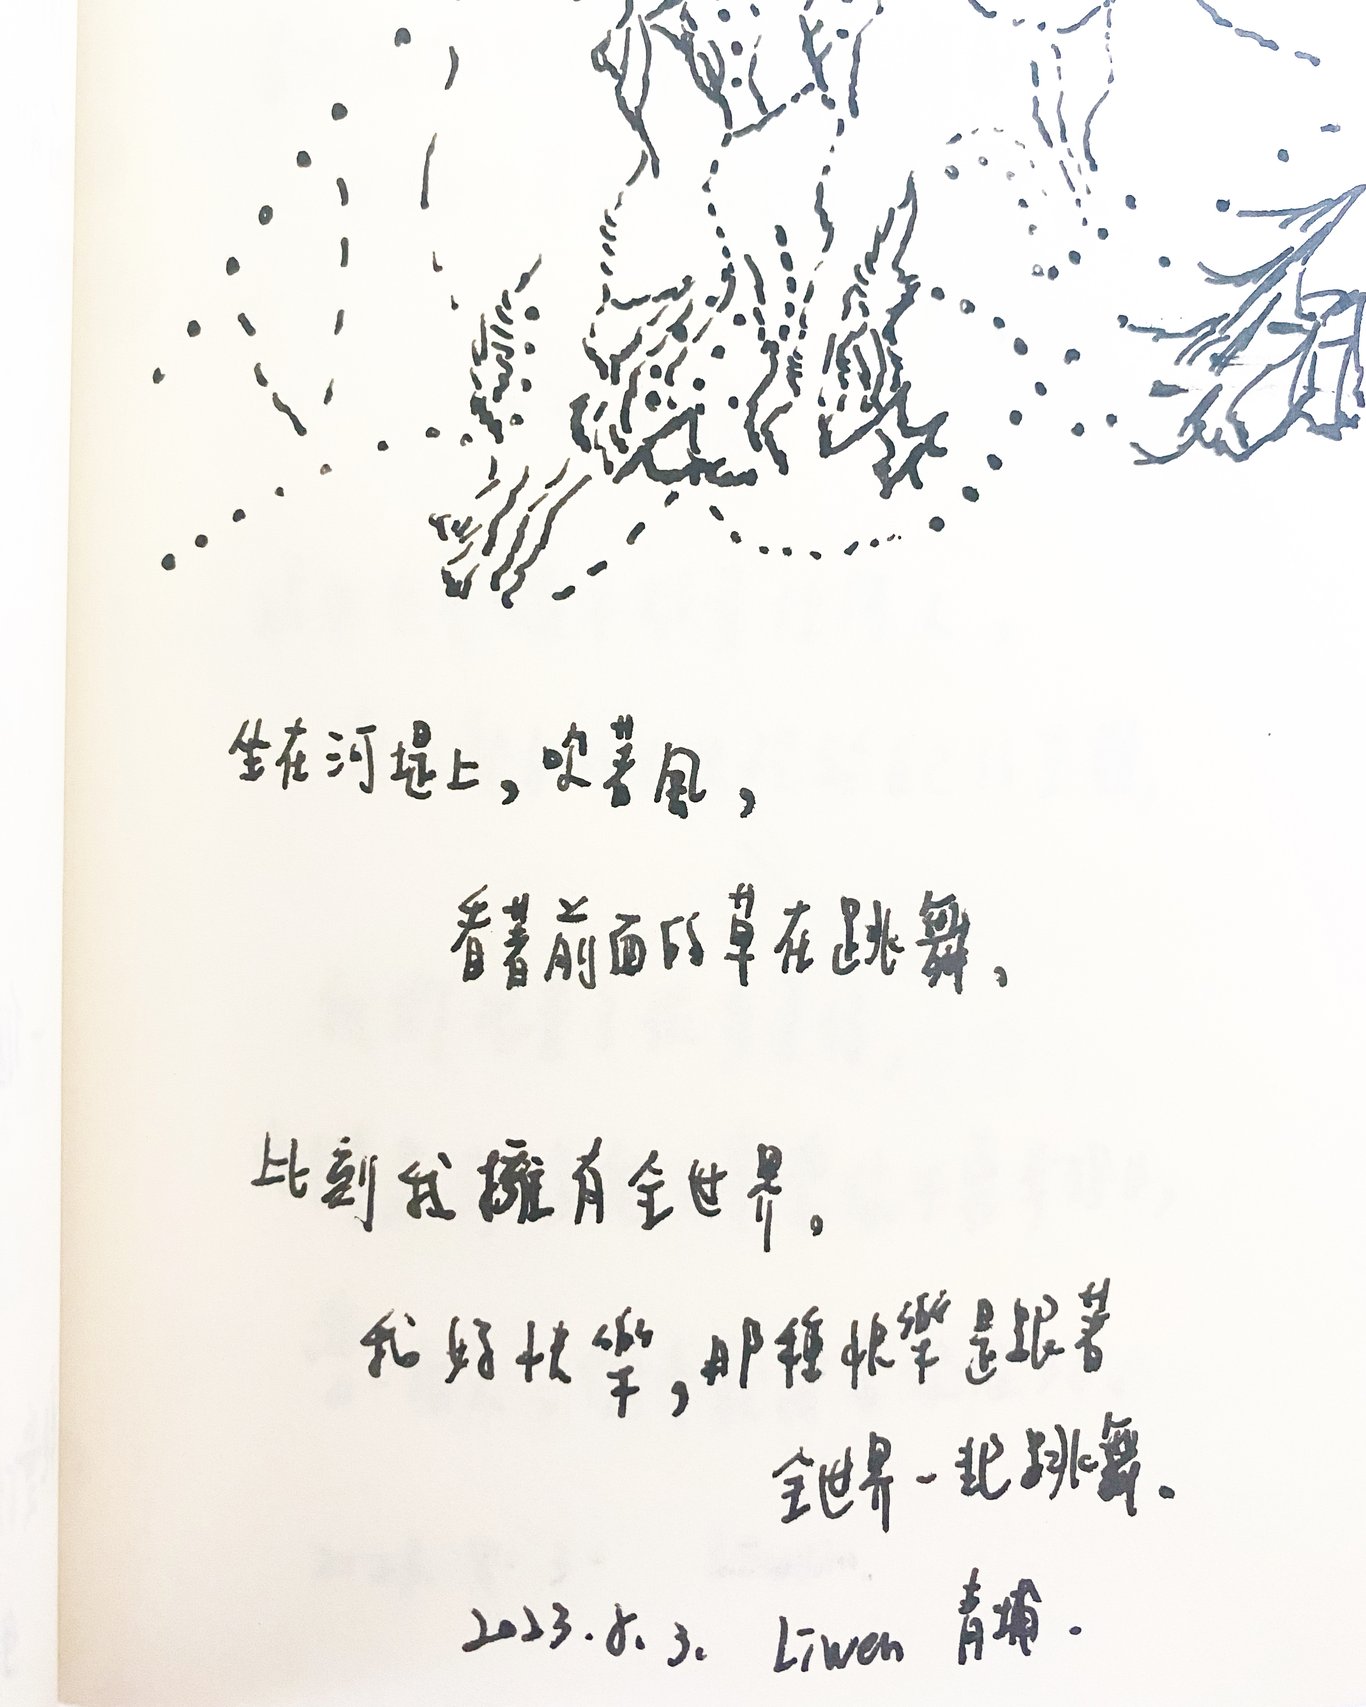 坐在河堤上，吹著風，
看著前面的草在跳舞，
此刻我擁有全世界。
我好快樂，那種快樂是跟著
全世界一起跳舞.
2023.8.3. Liwen 青埔.